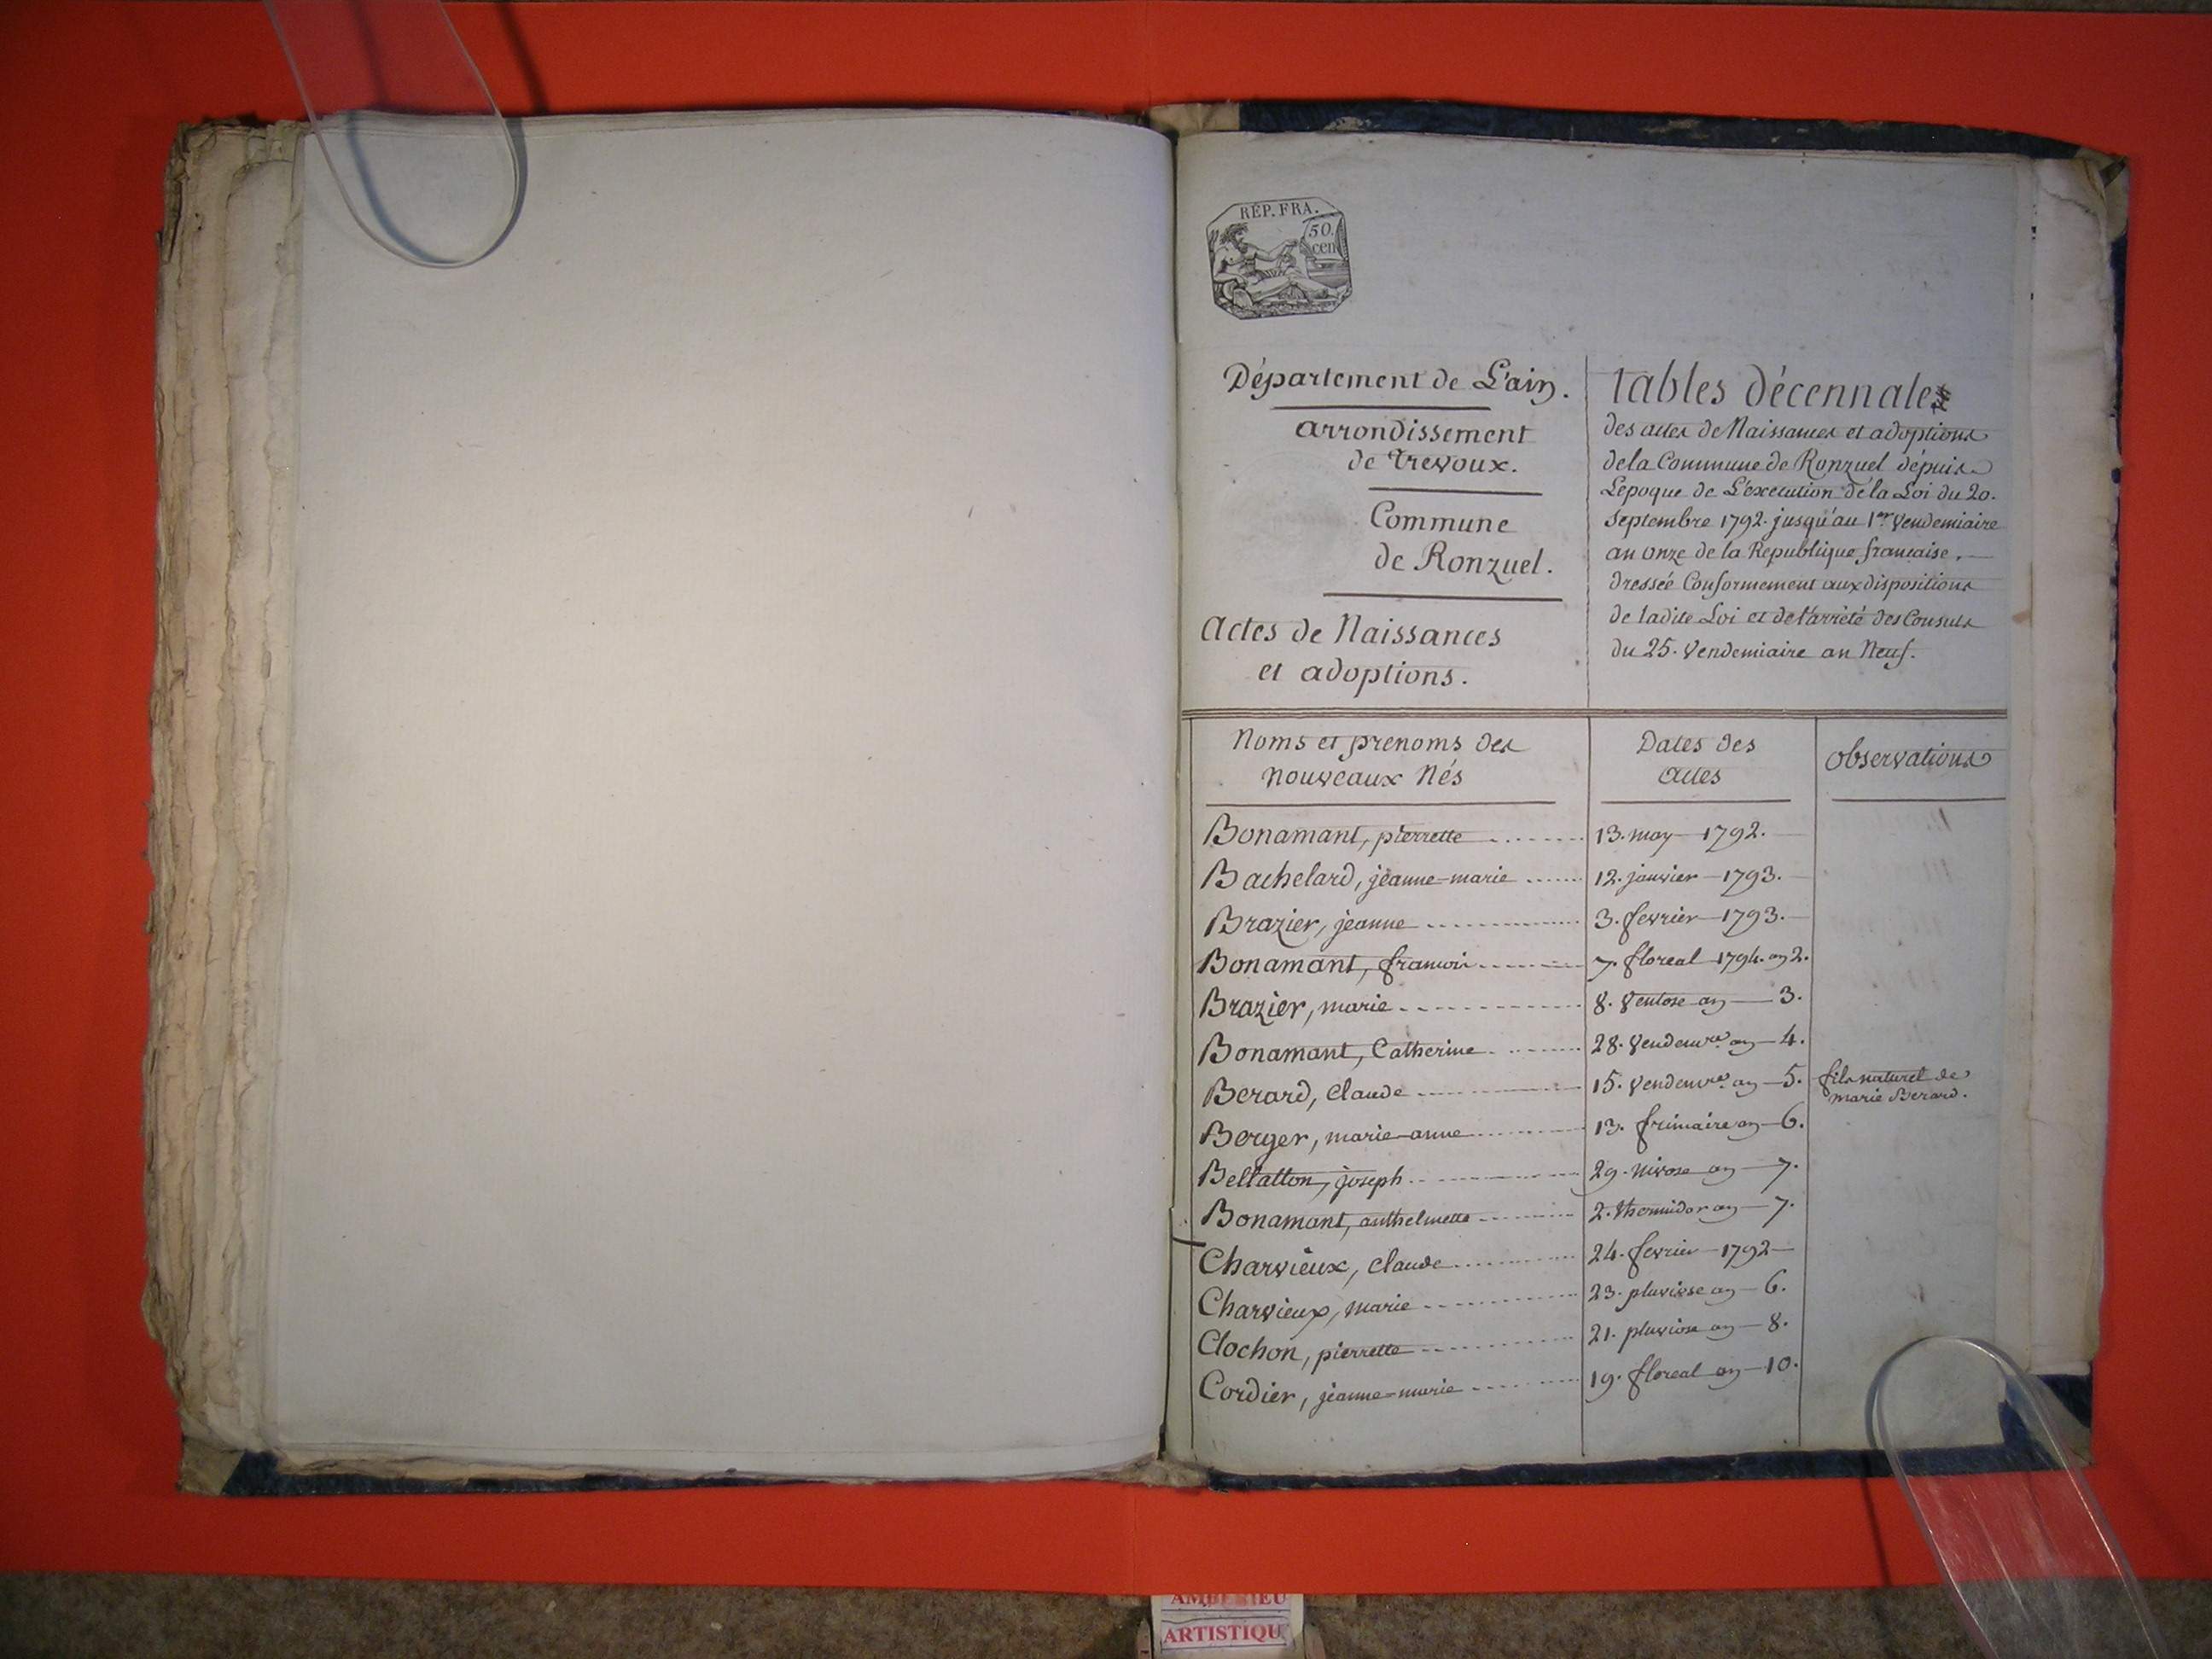 RÉP. FRA.
50.
cen
Département de L'ain.
arrondissement
de Trevoux.
Commune
de Ronzuel.
Actes de Naissances
et adoptions.
tables décennales
des actes de Naissances et adoptions
de la Commune de Ronzuel dépuis
L'epoque de L'execution de la Loi du 20.
Septembre 1792. jusqu'au 1er Vendemiaire
an onze de la Republique francaise.
dressée Conformement aux dispositions
de ladite Loi et de l'arrèté des Consuls
du 25. Vendemiaire an Neuf.
Noms et prenoms des
nouveaux Nés
Dates des
actes
observations
Bonamant, pierrette 13. may 1792.
Bachelard, jeanne-marie 12. janvier 1793.
Brazier, jeanne 3. fevrier 1793.
Bonamant, francois 7. floreal 1794. an 2.
Brazier, marie 8. Ventose an 3.
Bonamant, Catherine 28. Vendemre. an 4.
Berard, Claude 15. Vendemre. an 5. fils naturel de
marie Berard.
Berger, marie-anne 13. frimaire an 6.
Bellatton, joseph 29. nivose an 7.
Bonamant, anthelmette 2. thermidor an 7.
Charvieux, Claude 24. fevrier 1792
Charvieux, marie 23. pluviose an 6.
Clochon, pierrette 21. pluviose an 8.
Cordier, jeanne-marie 19. floreal an 10.
ARTISTIQU